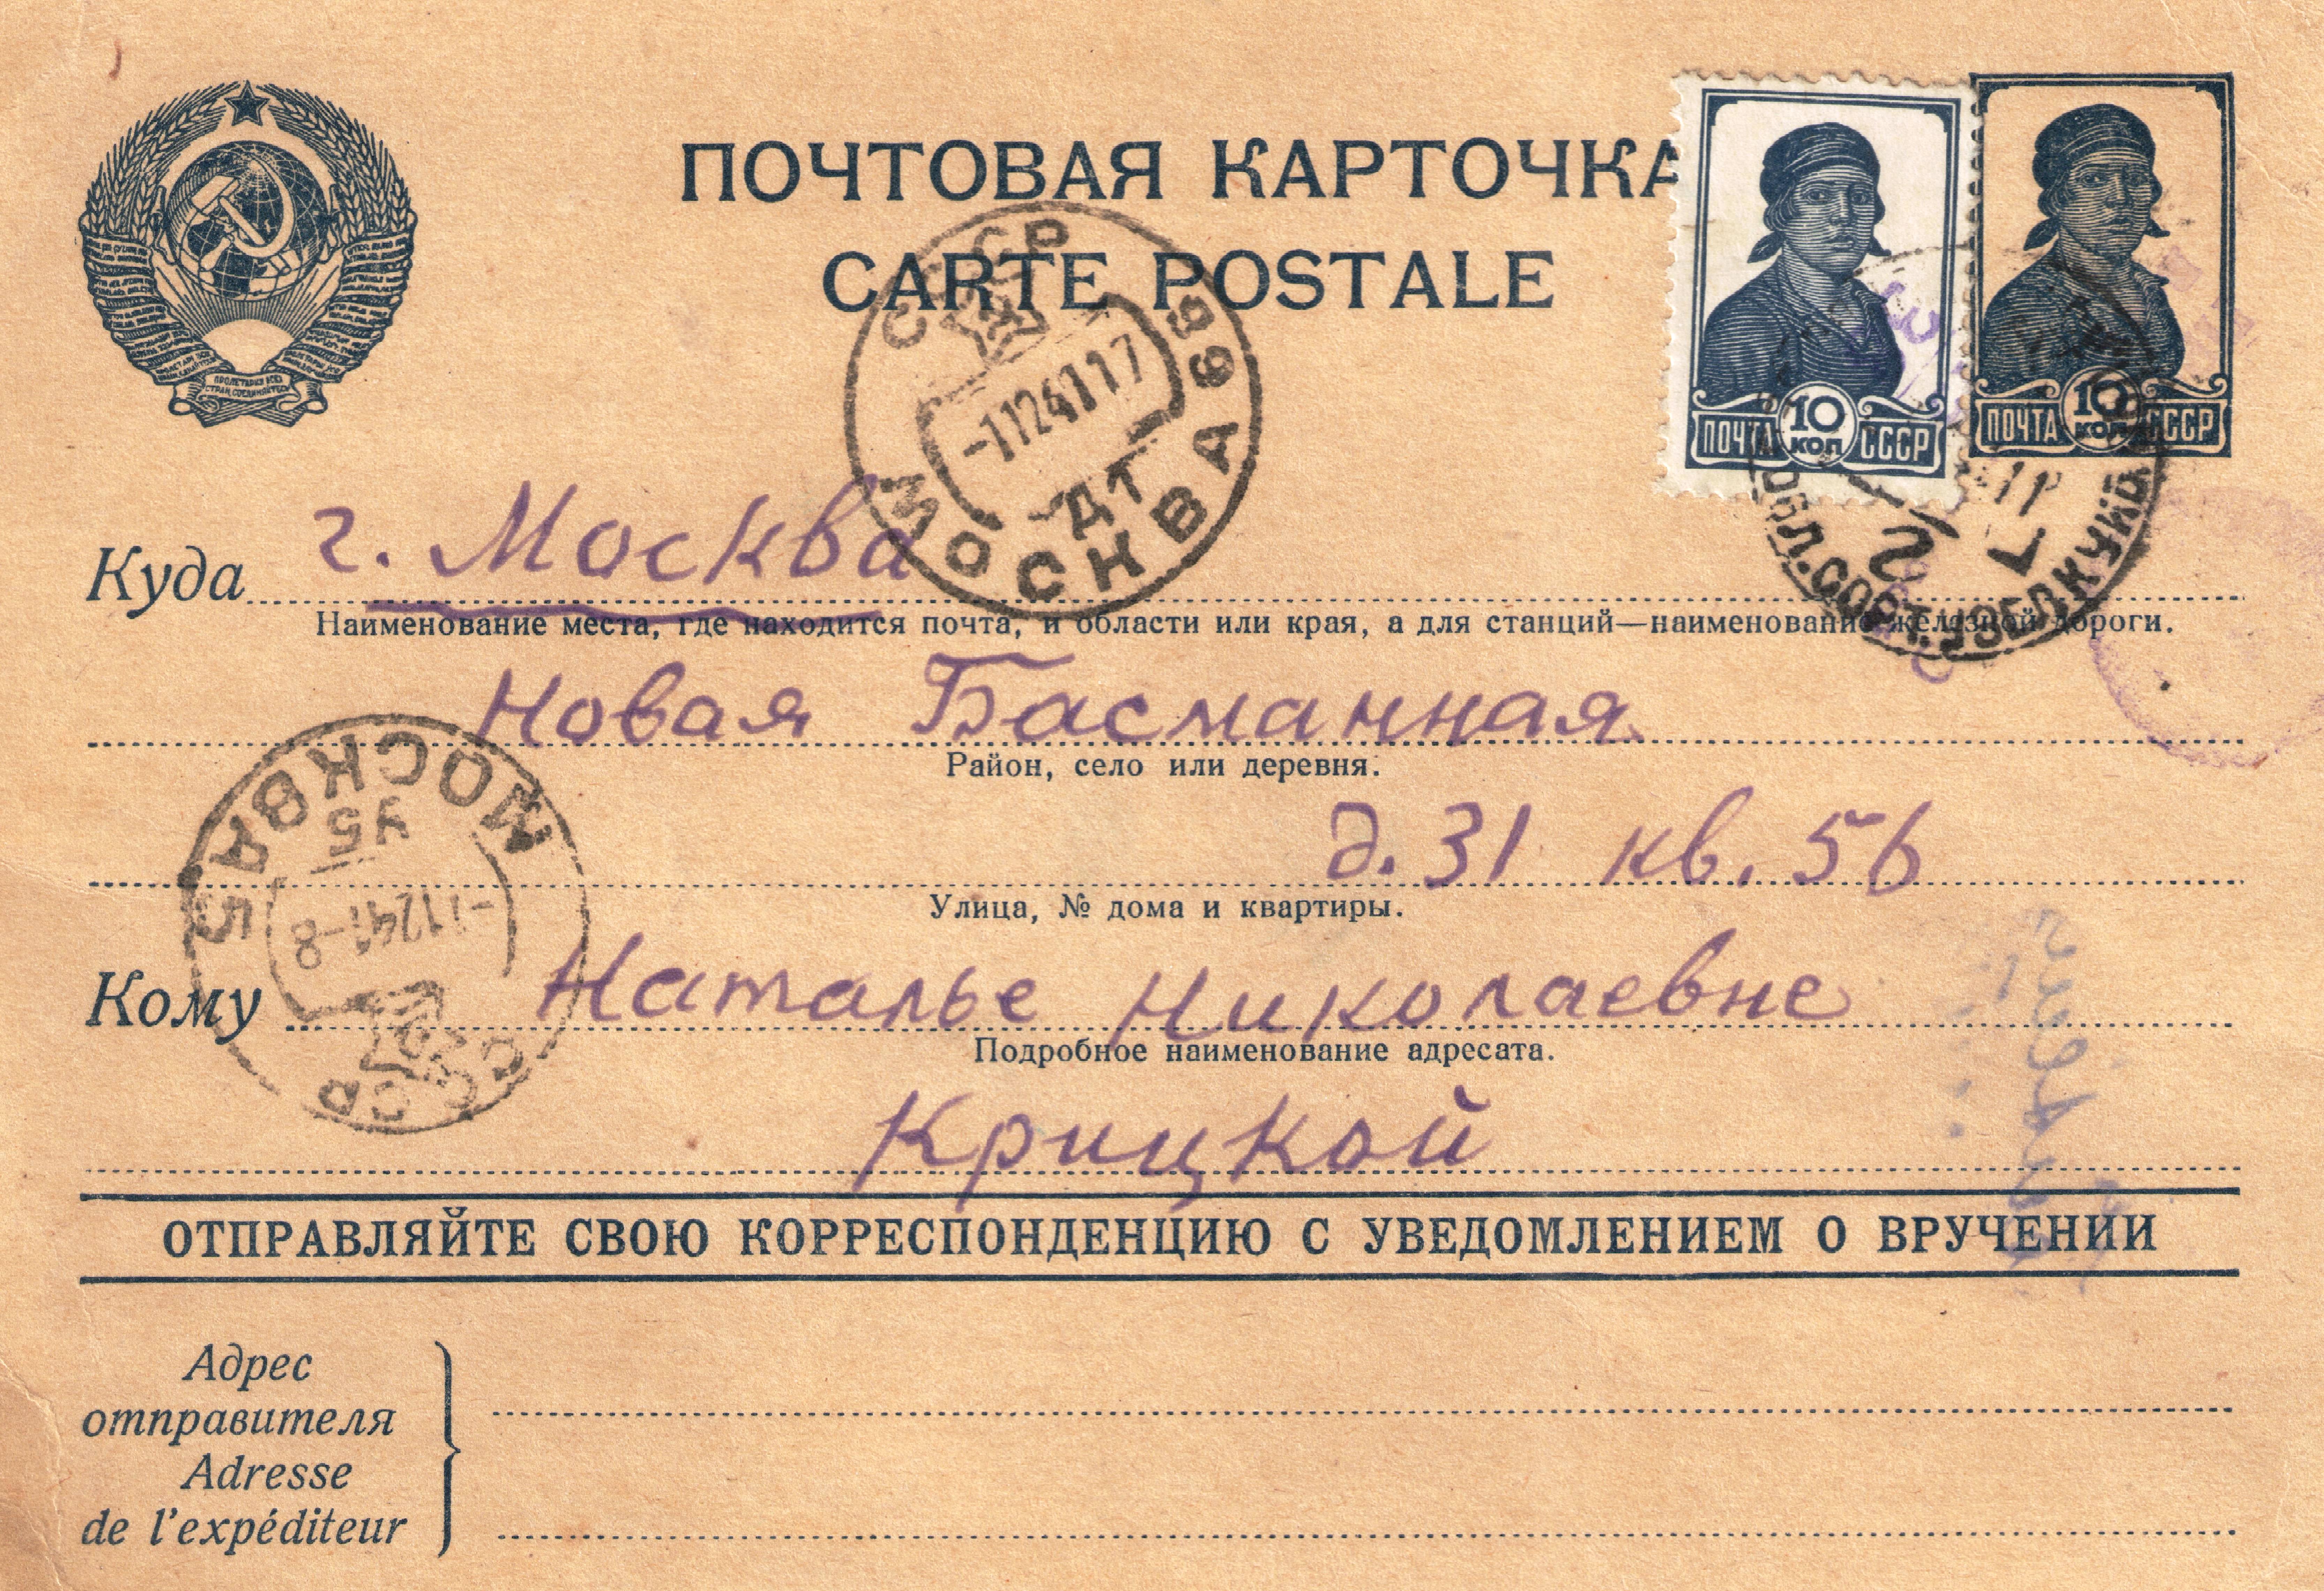 ПОЧТОВАЯ КАРТОЧКА
CARTE POSTALE
ПРОЛЕТАРИИ ВСЕХ
СТРАН, СОЕДИНЯЙТЕСЬ
10
КОП
ПОЧТА СССР
10
КОП
ПОЧТА СССР
СССР
-1124117
ДТ
МОСКВА 66
Куда г. Москва
Наименование места, где находится почта, и области или края, а для станций—наименование железной дороги.
Новая Басманная
Район, село или деревня.
д. 31 кв. 56
Улица, № дома и квартиры.
МОСКВА 5
У5
-11241-8
СССР
Кому Наталье Николаевне
Подробное наименование адресата.
Крицкой
ОТПРАВЛЯЙТЕ СВОЮ КОРРЕСПОНДЕНЦИЮ С УВЕДОМЛЕНИЕМ О ВРУЧЕНИИ
Адрес
отправителя
Adresse
de l'expéditeur